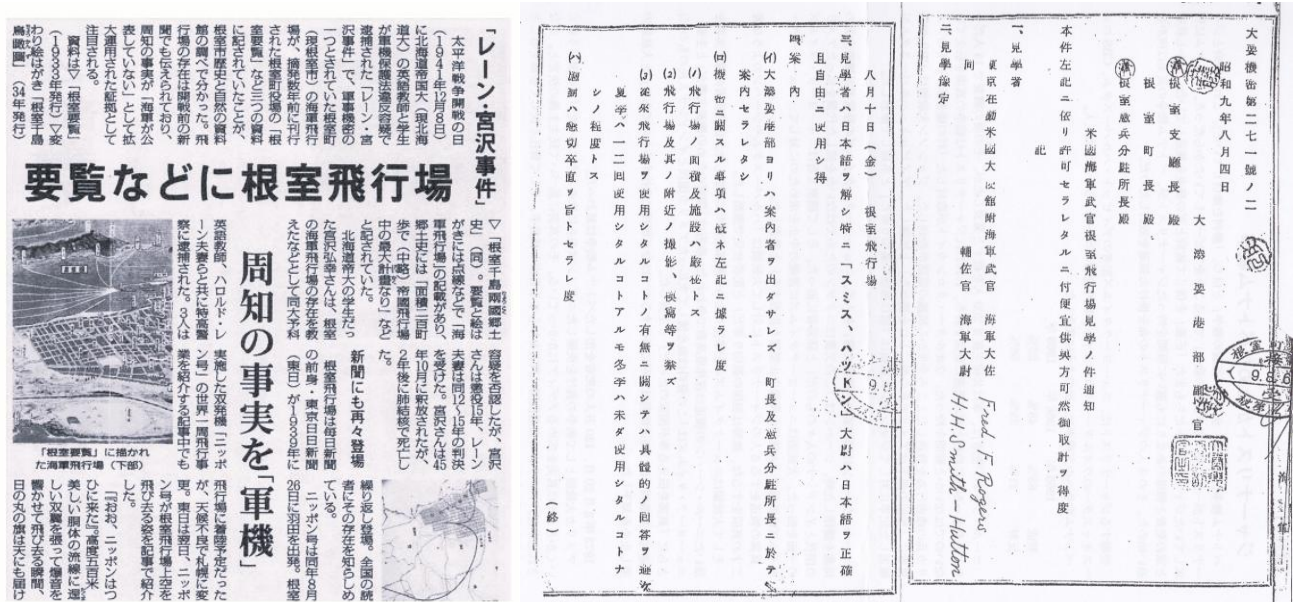 「レーン・宮沢事件」
要覧などに根室飛行場
周知の事実を「軍機」
太平洋戦争開戦の日
(1941年12月8日)
に北海道帝国大(現北海
道大)の英語教師と学生
が軍機保護法違反容疑で
逮捕された「レーン・宮
沢事件」で、軍事機密の
一つとされていた根室町
(現根室市)の海軍飛行
場が、摘発数年前に刊行
された根室町役場の「根
室要覧」など三つの資料
に記されていたことが、
根室市歴史と自然の資料
館の調べで分かった。飛
行場の存在は開戦前の新
聞でも伝えられており、
周知の事実が「海軍が公
表していない」として拡
大運用された証拠として
注目される。
資料は▽「根室要覧」
(1933年発行)▽変
わり絵はがき「根室千島
鳥瞰圖」(34年発行)
▽「根室千島兩國郷土
史」(同)。要覧と絵は
がきには点線などで「海
軍飛行場」の記載があり、
郷土史には「面積二百町
歩で(中略)帝國飛行場
中の最大計畫なり」など
と記されていた。
北海道帝大の学生だっ
た宮沢弘幸さんは、根室
の海軍飛行場の存在を教
えたなどとして同大予科
英語教師、ハロルド・レ
ーン夫妻らと共に特高警
察に逮捕された。3人は
容疑を否認したが、宮沢
さんは懲役15年、レーン
夫妻は同12〜15年の判決
を受けた。宮沢さんは45
年10月に釈放されたが、
2年後に肺結核で死亡し
た。
新聞にも再々登場
根室飛行場は毎日新聞
の前身・東京日日新聞
(東日)が1939年に
実施した双発機「ニッポ
ン号」の世界一周飛行事
業を紹介する記事中でも
繰り返し登場。全国の読
者にその存在を知らしめ
ている。
ニッポン号は同年8月
26日に羽田を出発。根室
飛行場に着陸予定だった
が、天候不良で札幌に変
更。東日は翌日、ニッポ
ン号が根室飛行場上空を
飛び去る姿を記事で紹介
した。
「『おお、ニッポンはつ
ひに来た』高度五百米、
美しい胴体の流線に逞
しい双翼を張って爆音を
響かせて飛び去る瞬間、
日の丸の旗は天にも届け
「根室要覧」に描かれ
た海軍飛行場(下部)
大湊機密第二七一號ノ二
昭和九年八月四日
大湊要港部副官
根室支廳長殿
根室町長殿
根室憲兵分駐所長殿
米國海軍武官根室飛行場見學ノ件通知
本件左記ニ依リ許可セラレタルニ付便宜供與方可然御取計ヲ得度
記
一、見學者
東京在勤米國大使館附海軍武官 海軍大佐 Fred. F. Rogers
同 輔佐官 海軍大尉 H.H.Smith-Hutton
二、見學豫定
八月十日(金) 根室飛行場
三、見學者ハ日本語ヲ解シ特ニ「スミス、ハットン」大尉ハ日本語ヲ正確
且自由ニ使用シ得
四、案内
(イ)大湊要港部ヨリハ案内者ヲ出ダサレズ 町長及憲兵分駐所長ニ於テ
案内セラレタシ
(ロ)機密ニ關スル事項ハ概ネ左記ニ據ラレ度
(1)飛行場ノ面積及施設ハ嚴秘トス
(2)飛行場及其ノ附近ノ撮影、模寫等ヲ禁ズ
(3)從來飛行場ヲ使用シタルコトノ有無ニ關シテハ具體的ノ回答ヲ避ケ
夏季ハ一二回使用シタルコトアルモ冬季ハ未ダ使用シタルコトナ
シノ程度トス
(ハ)應酬ハ懇切卒直ヲ旨トセラレ度
(終)